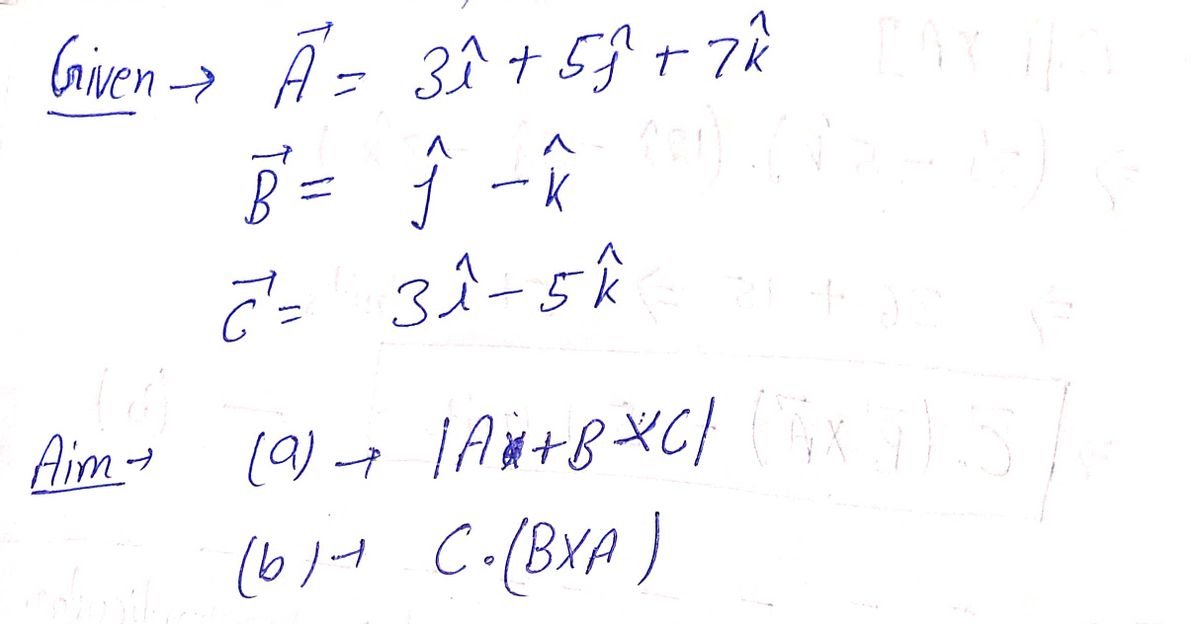 Given → A⃗ = 3î + 5ĵ + 7k̂
B⃗ = ĵ - k̂
C⃗ = 3î - 5k̂
Aim → (a) → |A + B × C|
(b) → C.(B×A)